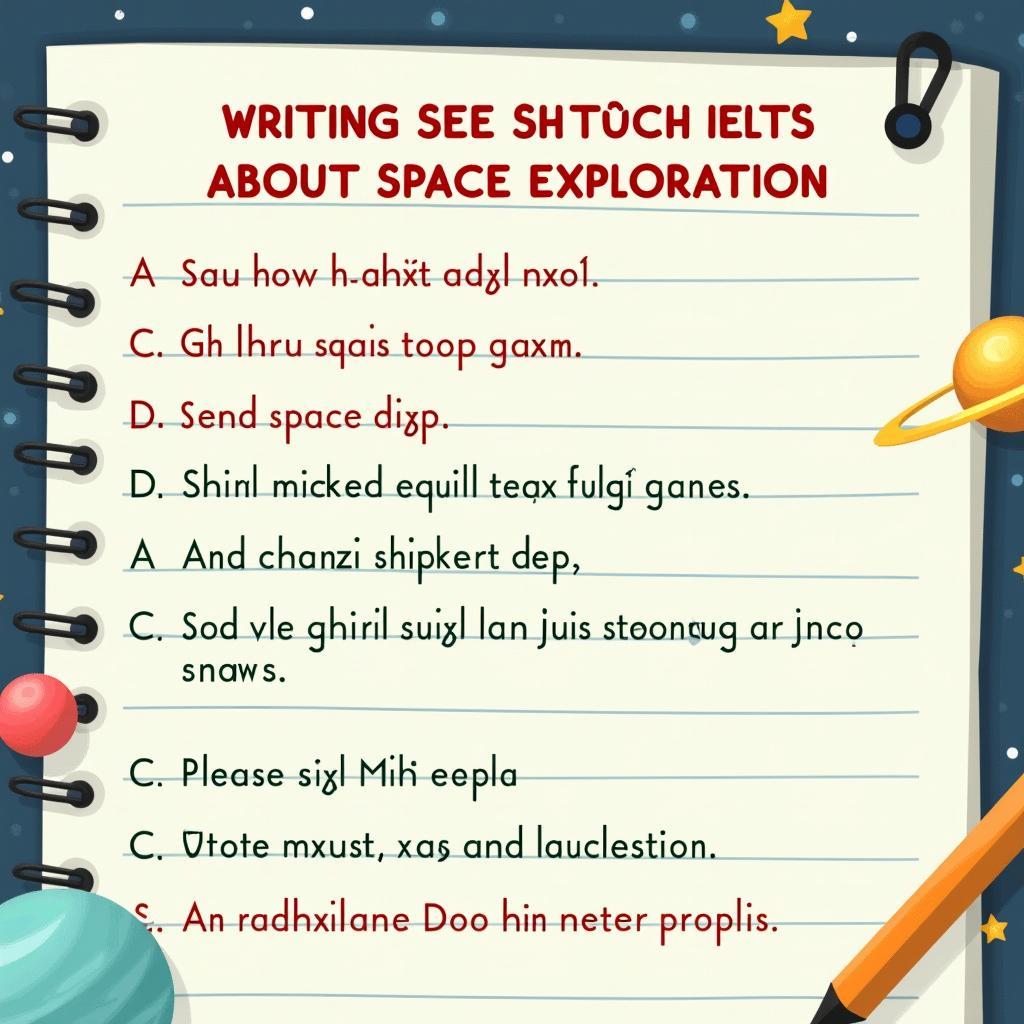 WRITING SEE SHTÛCH IELTS
ABOUT SPACE EXPLORATION
A Sau how h-ahẍt adɣl nxo1.
C. Gh lhru sqais toop gaxm.
D. Send space diɣp.
D. Shinl micked equill teqx fulgí ganes.
A And chanzi shipkert dep,
C. Sod vle ghiril suiɣl lan juis stoonꞔug ar jnco̩
snaws.
C. Please siɣl Mih eepla
C. Utote mxust, xaș and lauclestion.
S. An radhxilane Doo hin neter proplis.